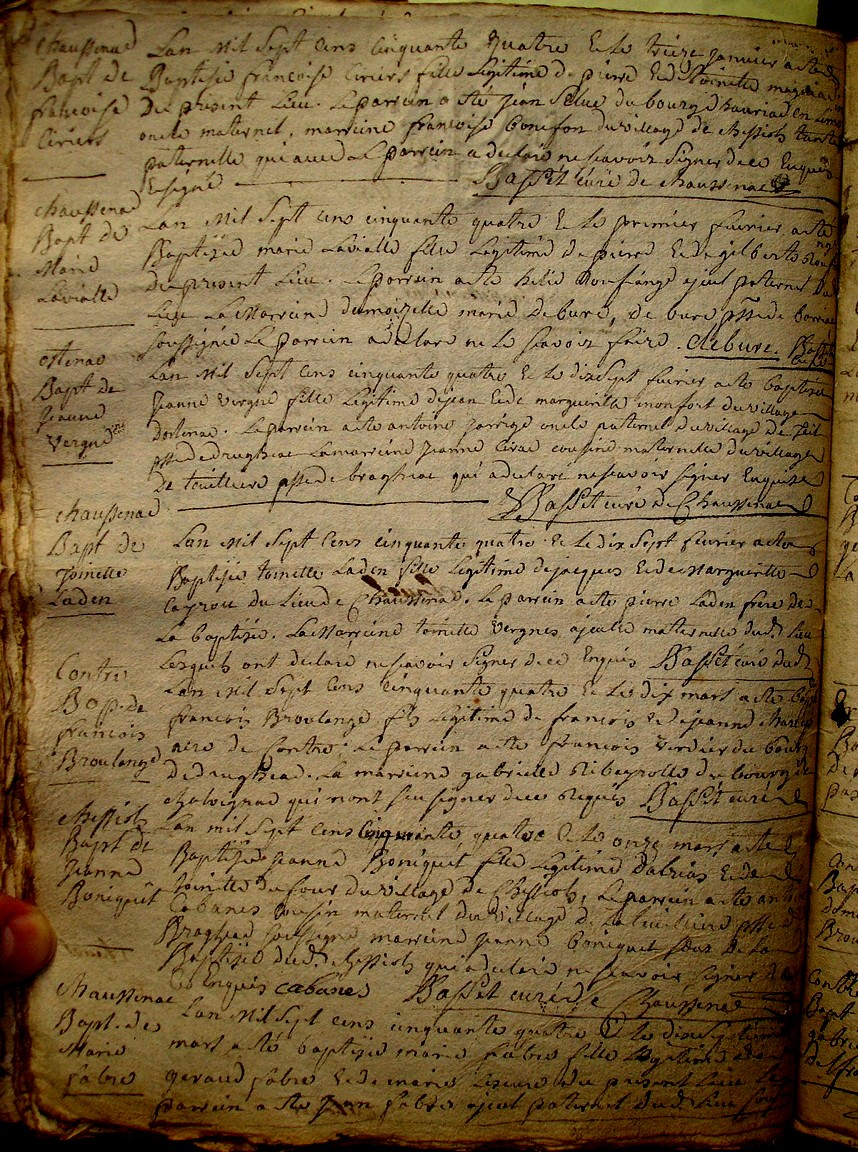 chaussenac
Bapt de
francoise
Ciriers
Lan mil sept cens cinquante quatre & le treize janvier a este
Baptisée francoise Ciriers fille legitime de pierre & de toinette
du present lieu. Le parrein a esté jean du bourg
oncle maternel, marreine francoise bonefon du village de chessiols tante
paternelle qui avec le parrein a declaré ne scavoir signer de ce enquis
& signé Basset curé de chaussenac
chaussenac
Bapt de
Marie
Lavialle
Lan mil sept cens cinquante quatre & le premier fevrier a esté
Baptisée marie Lavialle fille legitime de pierre & de gilberte
du present lieu. Le parrein a esté ayeul paternel du
lieu La Marreine demoizelle marie debure, de bure psse de
soussignée Le parrein a declaré ne le scavoir faire. debure.
ostenac
Bapt de
Jeanne
Vergne
Lan mil sept cens cinquante quatre & le dix sept fevrier a esté baptisée
Jeanne Vergne fille legitime de jean & de margueritte monfort du village
dostenac. Le parrein a esté antoine oncle paternel du village de
psse de drugheac La marreine jeanne cousine maternelle du village
de psse de bragheac qui a declaré ne scavoir signer Enquise
Basset curé de Chaussenac
chaussenac
Bapt de
Toinette
Laden
Lan mil sept cens cinquante quatre & le dix sept fevrier a esté
Baptisée toinette Laden fille legitime de jacques & de Marguerite
Cayrou du Lieu de Chaussenac. Le parrein a esté pierre Laden frere de
La baptisée. La Marreine toinette Vergnes ayeulle maternelle dud. lieu
Lesquels ont declaré ne scavoir signer de ce Enquis Basset curé dud.
Contre
Bap. de
francois
Broulange
Lan mil sept cens cinquante quatre & le dix mars a esté
francois Broulange fils legitime de francois & de jeanne
de Contre. Le parrein a esté francois Verdier du bourg
de drugheac. La marreine gabrielle Ribeyrolle du bourg de
chalvignac qui n'ont seu signer de ce requis Basset curé
chessiols
Bapt de
Jeanne
Boniquet
Lan mil sept cens cinquante quatre & le onze mars a esté
Baptisée Jeanne Boniquet fille legitime & de
toinette dufour du village de Chessiols, Le parrein a esté
Cabanes cousin maternel du village de psse de
Bragheac soussigné marreine jeanne boniquet soeur de La
Baptisée dud. chessiols qui a declaré ne scavoir signer
Enquis cabanes Basset curé de Chaussenac
chaussenac
Bapt. de
Marie
fabre
Lan mil sept cens cinquante quatre & le
mars a esté baptisée marie fabre fille legitime
geraud fabre & de marie du present lieu Le
parrein a esté jean fabre ayeul paternel dud. lieu